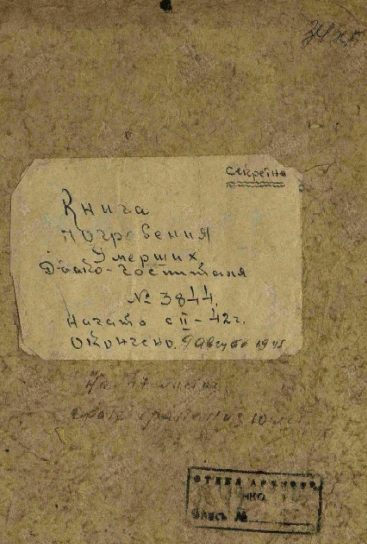 Секретно
Книга
погребения
умерших
Эвако-госпиталя
№ 3844.
Начато с II-42г.
Окончено. 9 августа 194
На листах
ОТДЕЛ АРХИВОВ
НКО
ОПИСЬ №